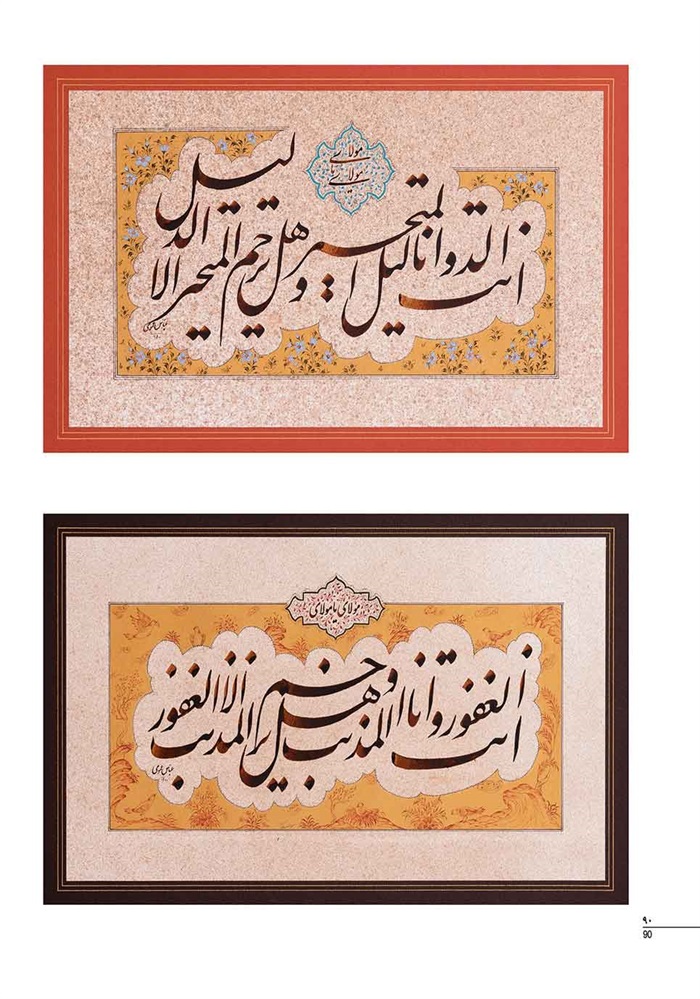 مولای
یا مولای
انت الدلیل و انا المتحیر و هل یرحم المتحیر الا الدلیل
مولای یا مولای
انت الغفور و انا المذنب و هل یرحم المذنب الا الغفور
۹۰
90